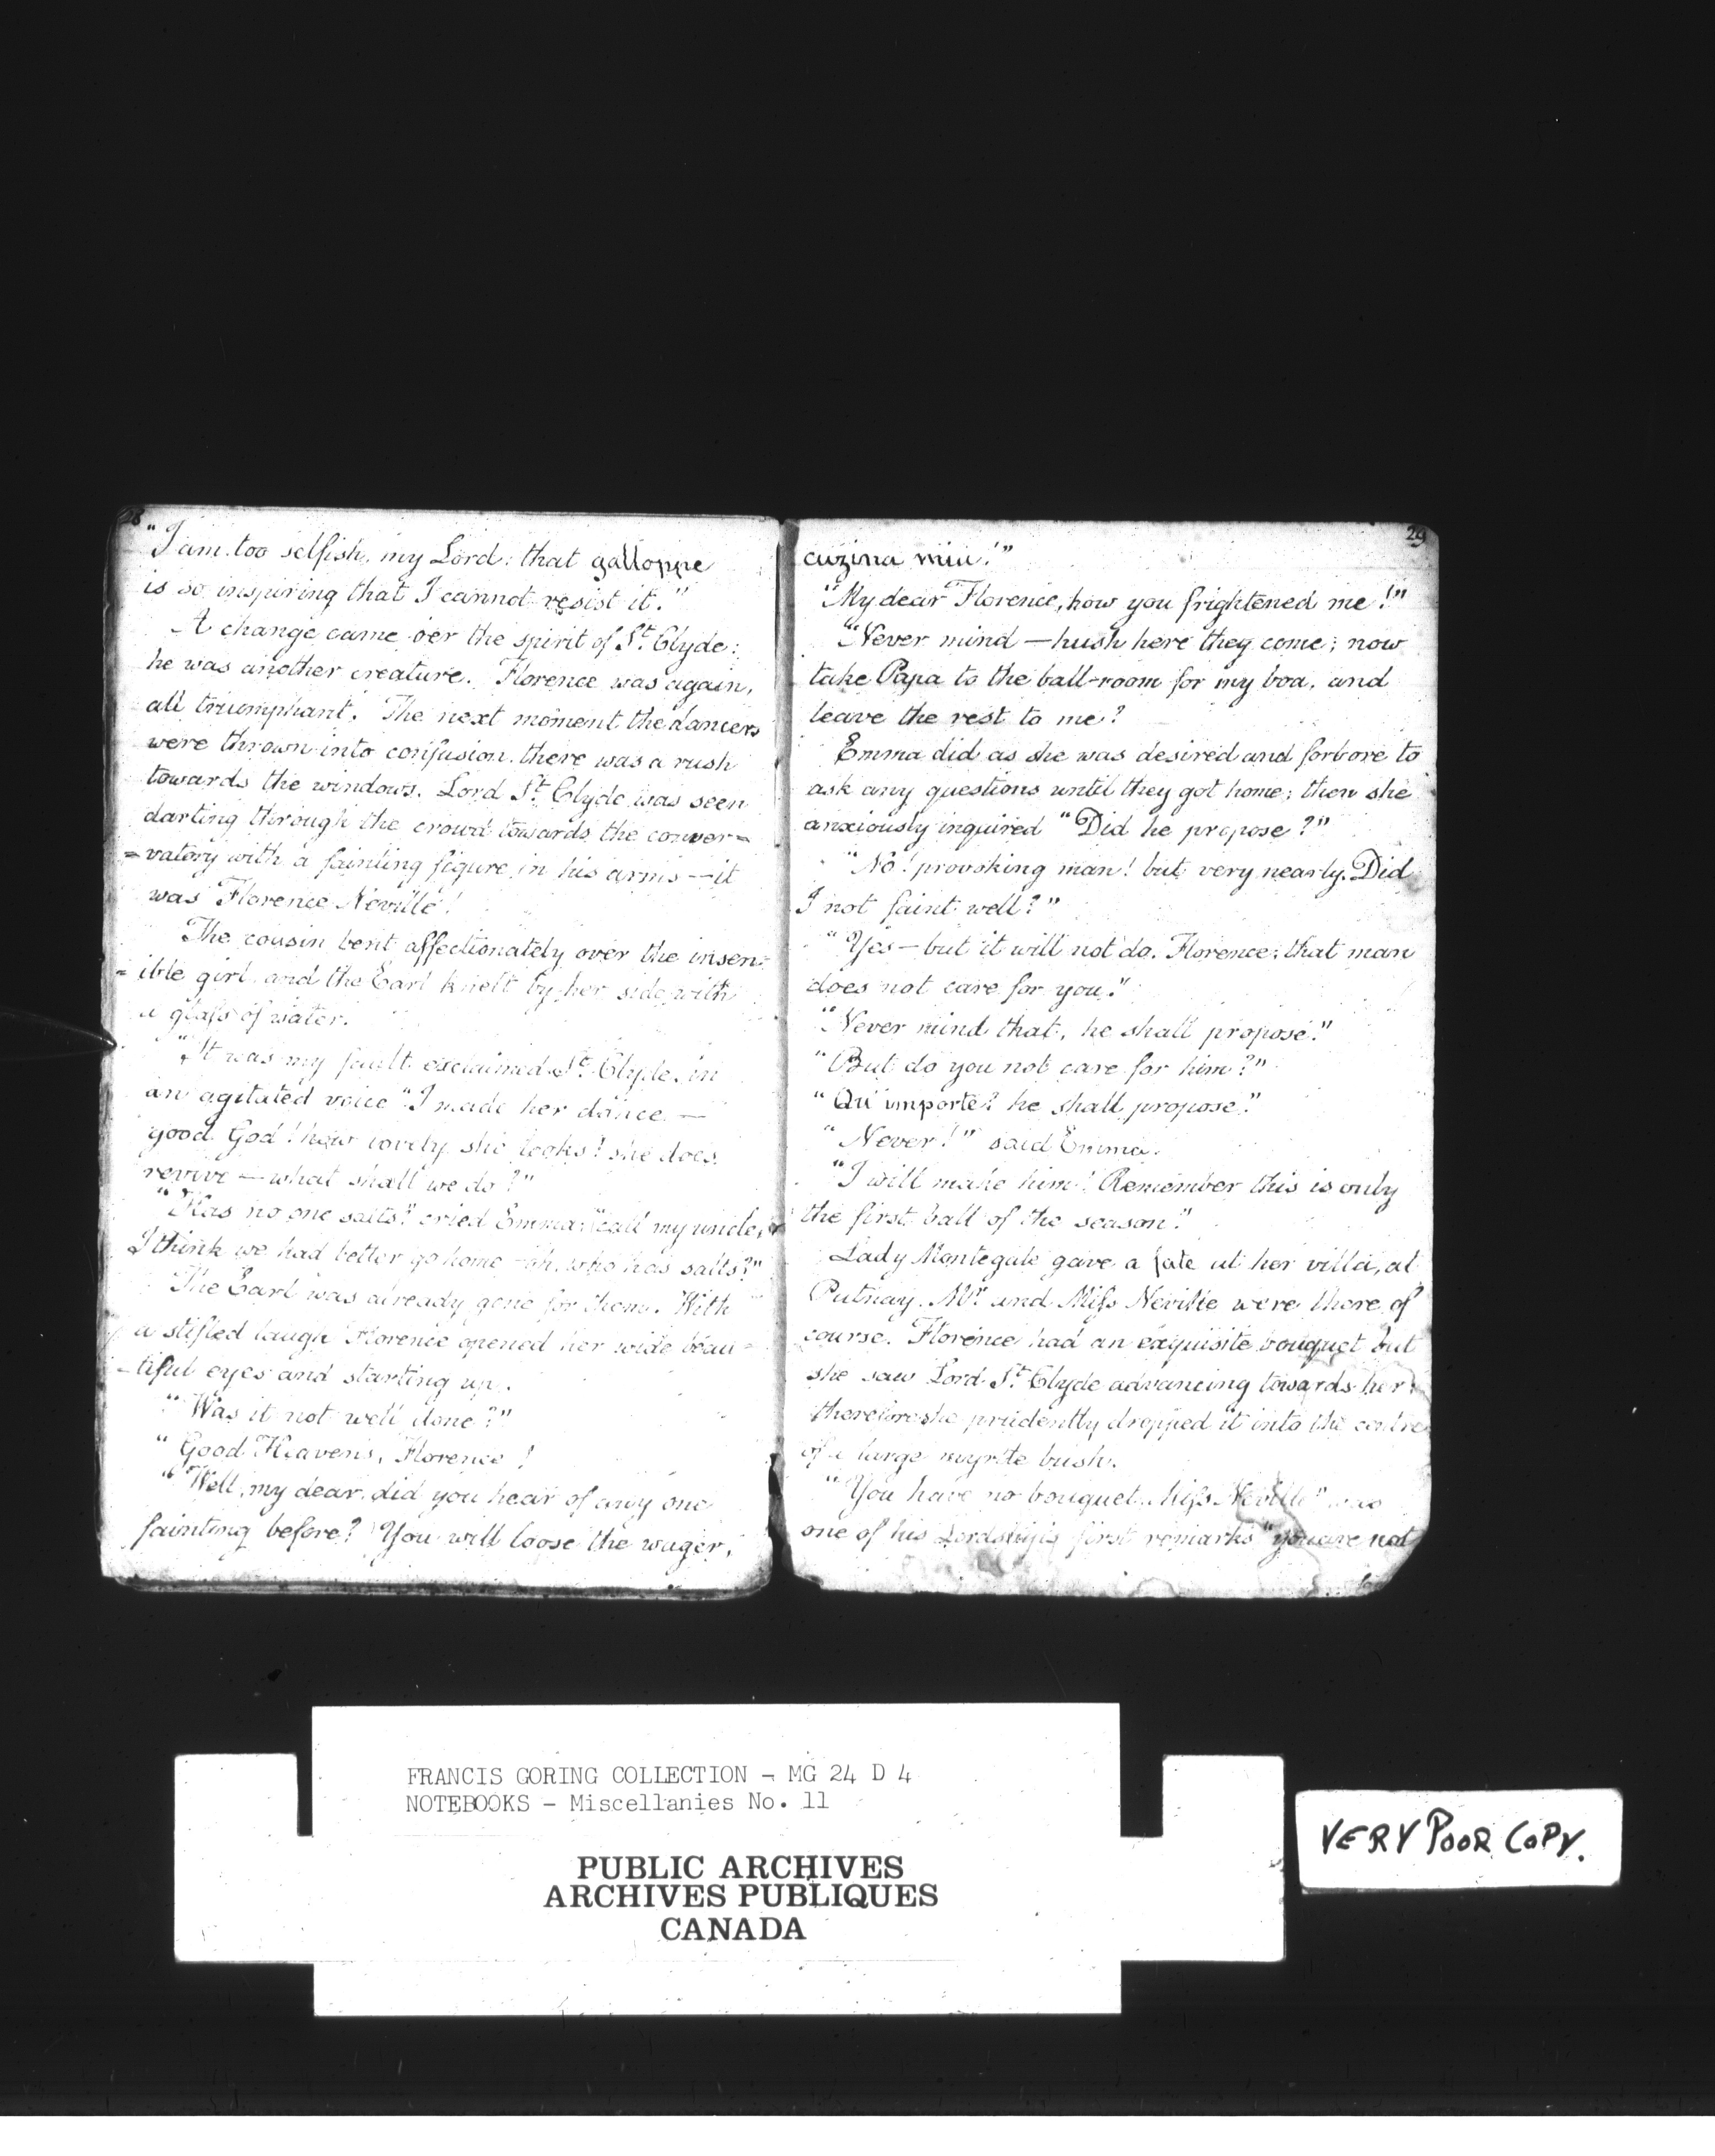 28
"I am too selfish, my Lord: that galloppe
is so inspiring that I cannot resist it."
A change came o'er the spirit of St. Clyde:
he was another creature. Florence was again,
all triumphant. The next moment the dancers
were thrown into confusion, there was a rush
towards the windows. Lord St. Clyde was seen
darting through the crowd towards the conver=
=vatory with a fainting figure in his arms — it
was Florence Neville!
The cousin bent affectionately over the insen=
=ible girl, and the Earl knelt by her side with
a glass of water.
"It was my fault exclaimed St. Clyde, in
an agitated voice "I made her dance —
good God! how lovely she looks! she does
revive — what shall we do?"
"Has no one salts?" cried Emma: "call my uncle,
I think we had better go home — oh, who has salts?"
The Earl was already gone for them. With
a stifled laugh Florence opened her wide beau=
=tiful eyes and starting up.
"Was it not well done?"
"Good Heavens, Florence!
"Well, my dear, did you hear of any one
fainting before? You will loose the wager,
29
cuzina mia!"
"My dear Florence, how you frightened me!"
"Never mind — hush here they come; now
take Papa to the ball-room for my boa, and
leave the rest to me?
Emma did as she was desired and forbore to
ask any questions until they got home; then she
anxiously inquired "Did he propose?"
"No! provoking man! but very nearly. Did
I not faint well?"
"Yes — but it will not do. Florence; that man
does not care for you."
"Never mind that, he shall propose."
"But do you not care for him?"
"Qu'importe? he shall propose."
"Never!" said Emma.
"I will make him! Remember this is only
the first ball of the season."
Lady Montegale gave a fate at her villa, at
Putnay. Mr. and Miss Neville were there of
course. Florence had an exquisite bouquet but
she saw Lord St. Clyde advancing towards her;
therefore she prudently dropped it into the centre
of a large myrtle bush.
"You have no bouquet, Miss Neville" was
one of his Lordship's first remarks "you are not
FRANCIS GORING COLLECTION - MG 24 D 4
NOTEBOOKS - Miscellanies No. 11
PUBLIC ARCHIVES
ARCHIVES PUBLIQUES
CANADA
VERY POOR COPY.